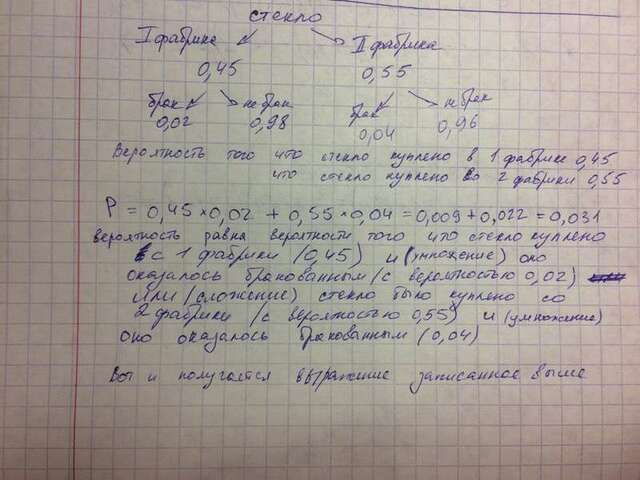 стекло
I фабрика II фабрика
0,45 0,55
брак не брак брак не брак
0,02 0,98 0,04 0,96
Вероятность того что стекло куплено в 1 фабрике 0,45
что стекло куплено во 2 фабрики 0,55
P = 0,45 × 0,02 + 0,55 × 0,04 = 0,009 + 0,022 = 0,031
вероятность равна вероятности того что стекло куплено
с 1 фабрики (0,45) и (умножение) оно
оказалось бракованным (с вероятностью 0,02)
или (сложение) стекло было куплено со
2 фабрики (с вероятностью 0,55) и (умножение)
оно оказалось бракованным (0,04)
Вот и получается выражение записанное выше